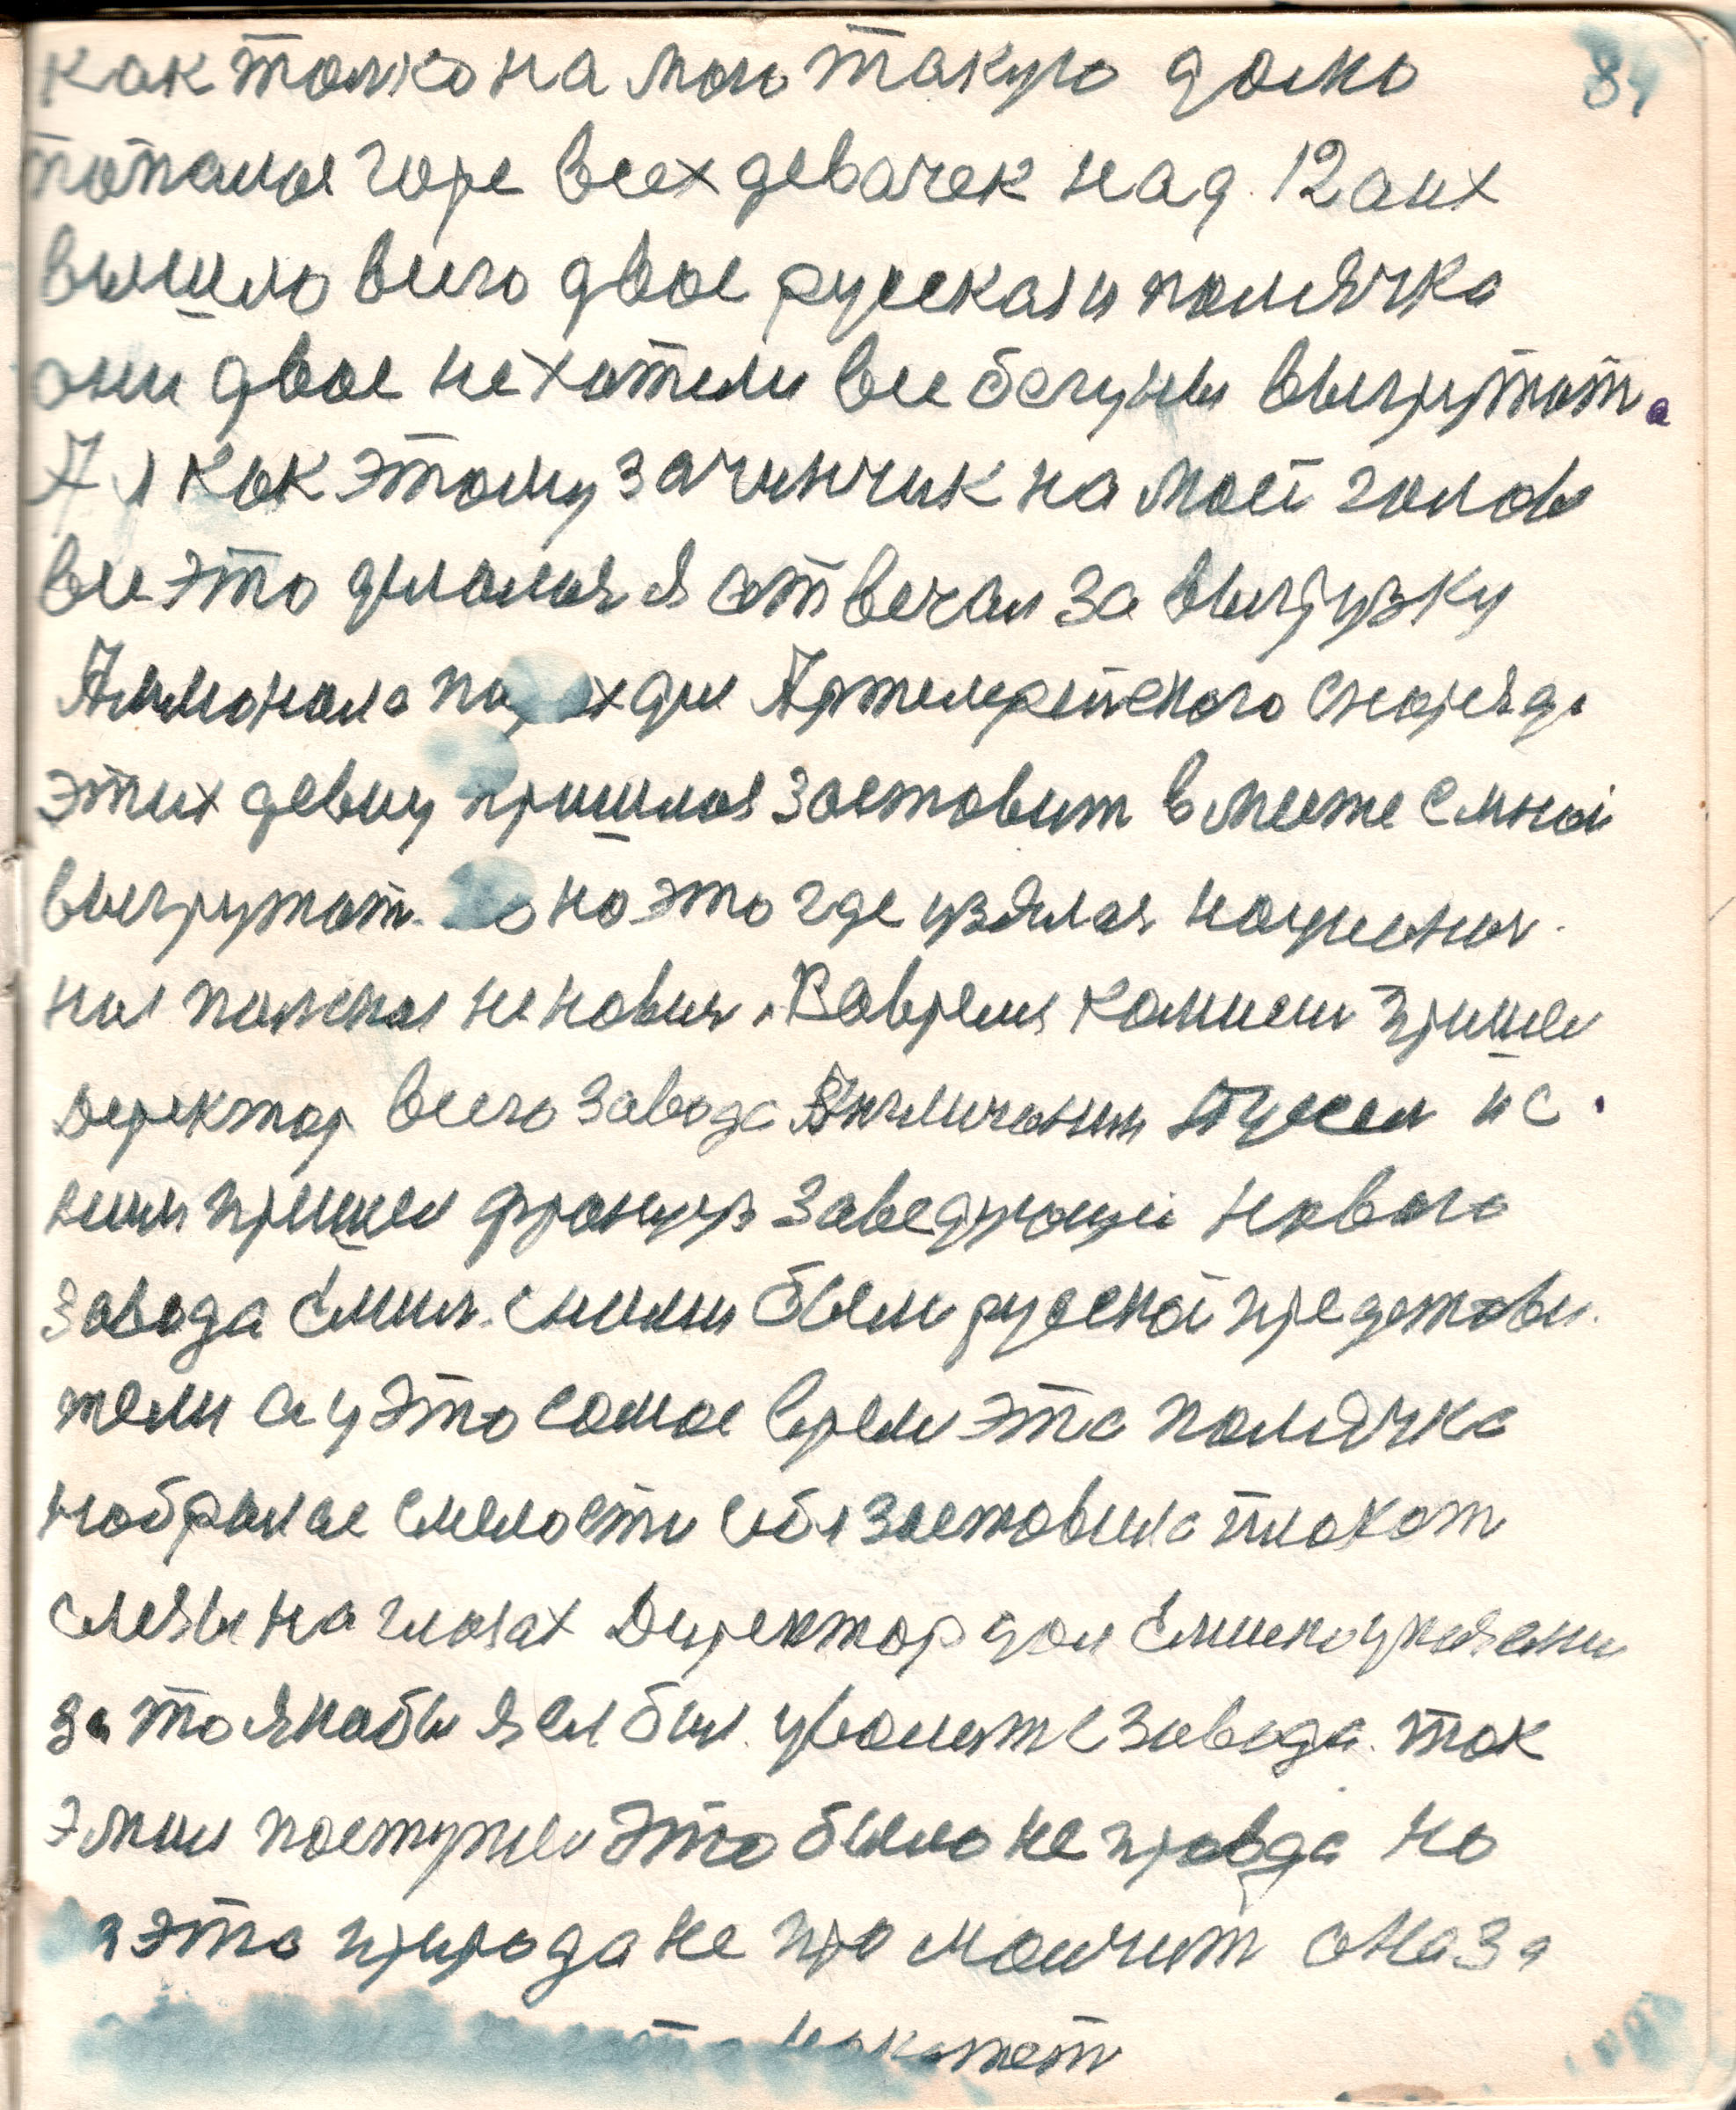 как толко на мою такую долю 84
попалое горе всех девачек над. 12 аих
вышло всего двое руская и полячка
они двое не хотели все бегуны выгрутат.
А я как этому зачинчик на моей голове
все это делалоя я отвечал за выгрузку
Аммонала для Артелерейского снаряда
этих девиц пришлоя заставит вместе смной
выгрутат. но это где узялая
ная полская не новия. Вовремя комисии пришел
Деректор всего завода Англичанин и с
ним пришел француз заведующи нового
завода Емил. сними были руской предстови.
тели а у это самое время эта полячка
набралае смелости себя заставила плакат
слезы на глазах Директор дал
за то якобы я ей был. уволит с завода. так
Эмил поступил Это было не правда но
эта природа не про молчит она за
накажет